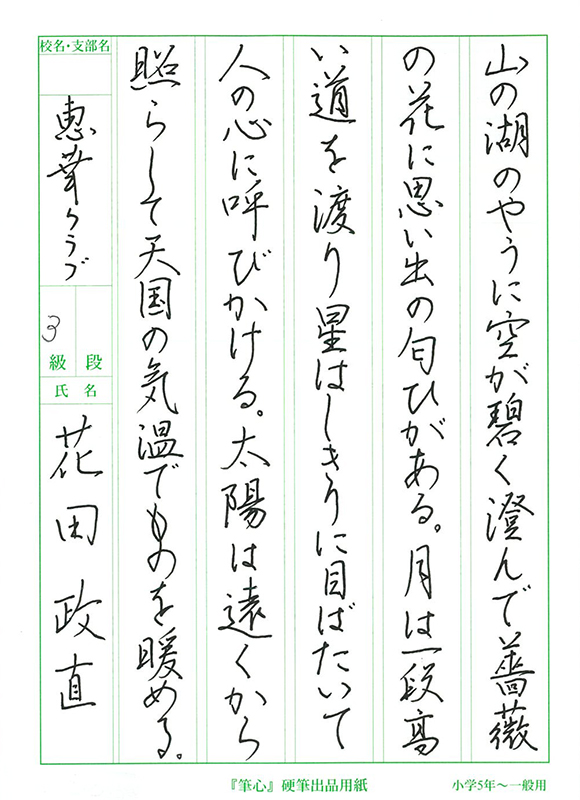 山の湖のやうに空が碧く澄んで薔薇
の花に思い出の匂ひがある。月は一段高
い道を渡り星はしきりに目ばたいて
人の心に呼びかける。太陽は遠くから
照らして天国の気温でものを暖める。
校名・支部名
恵華クラブ
3
級 段
氏 名
花田政直
『筆心』硬筆出品用紙
小学5年～一般用